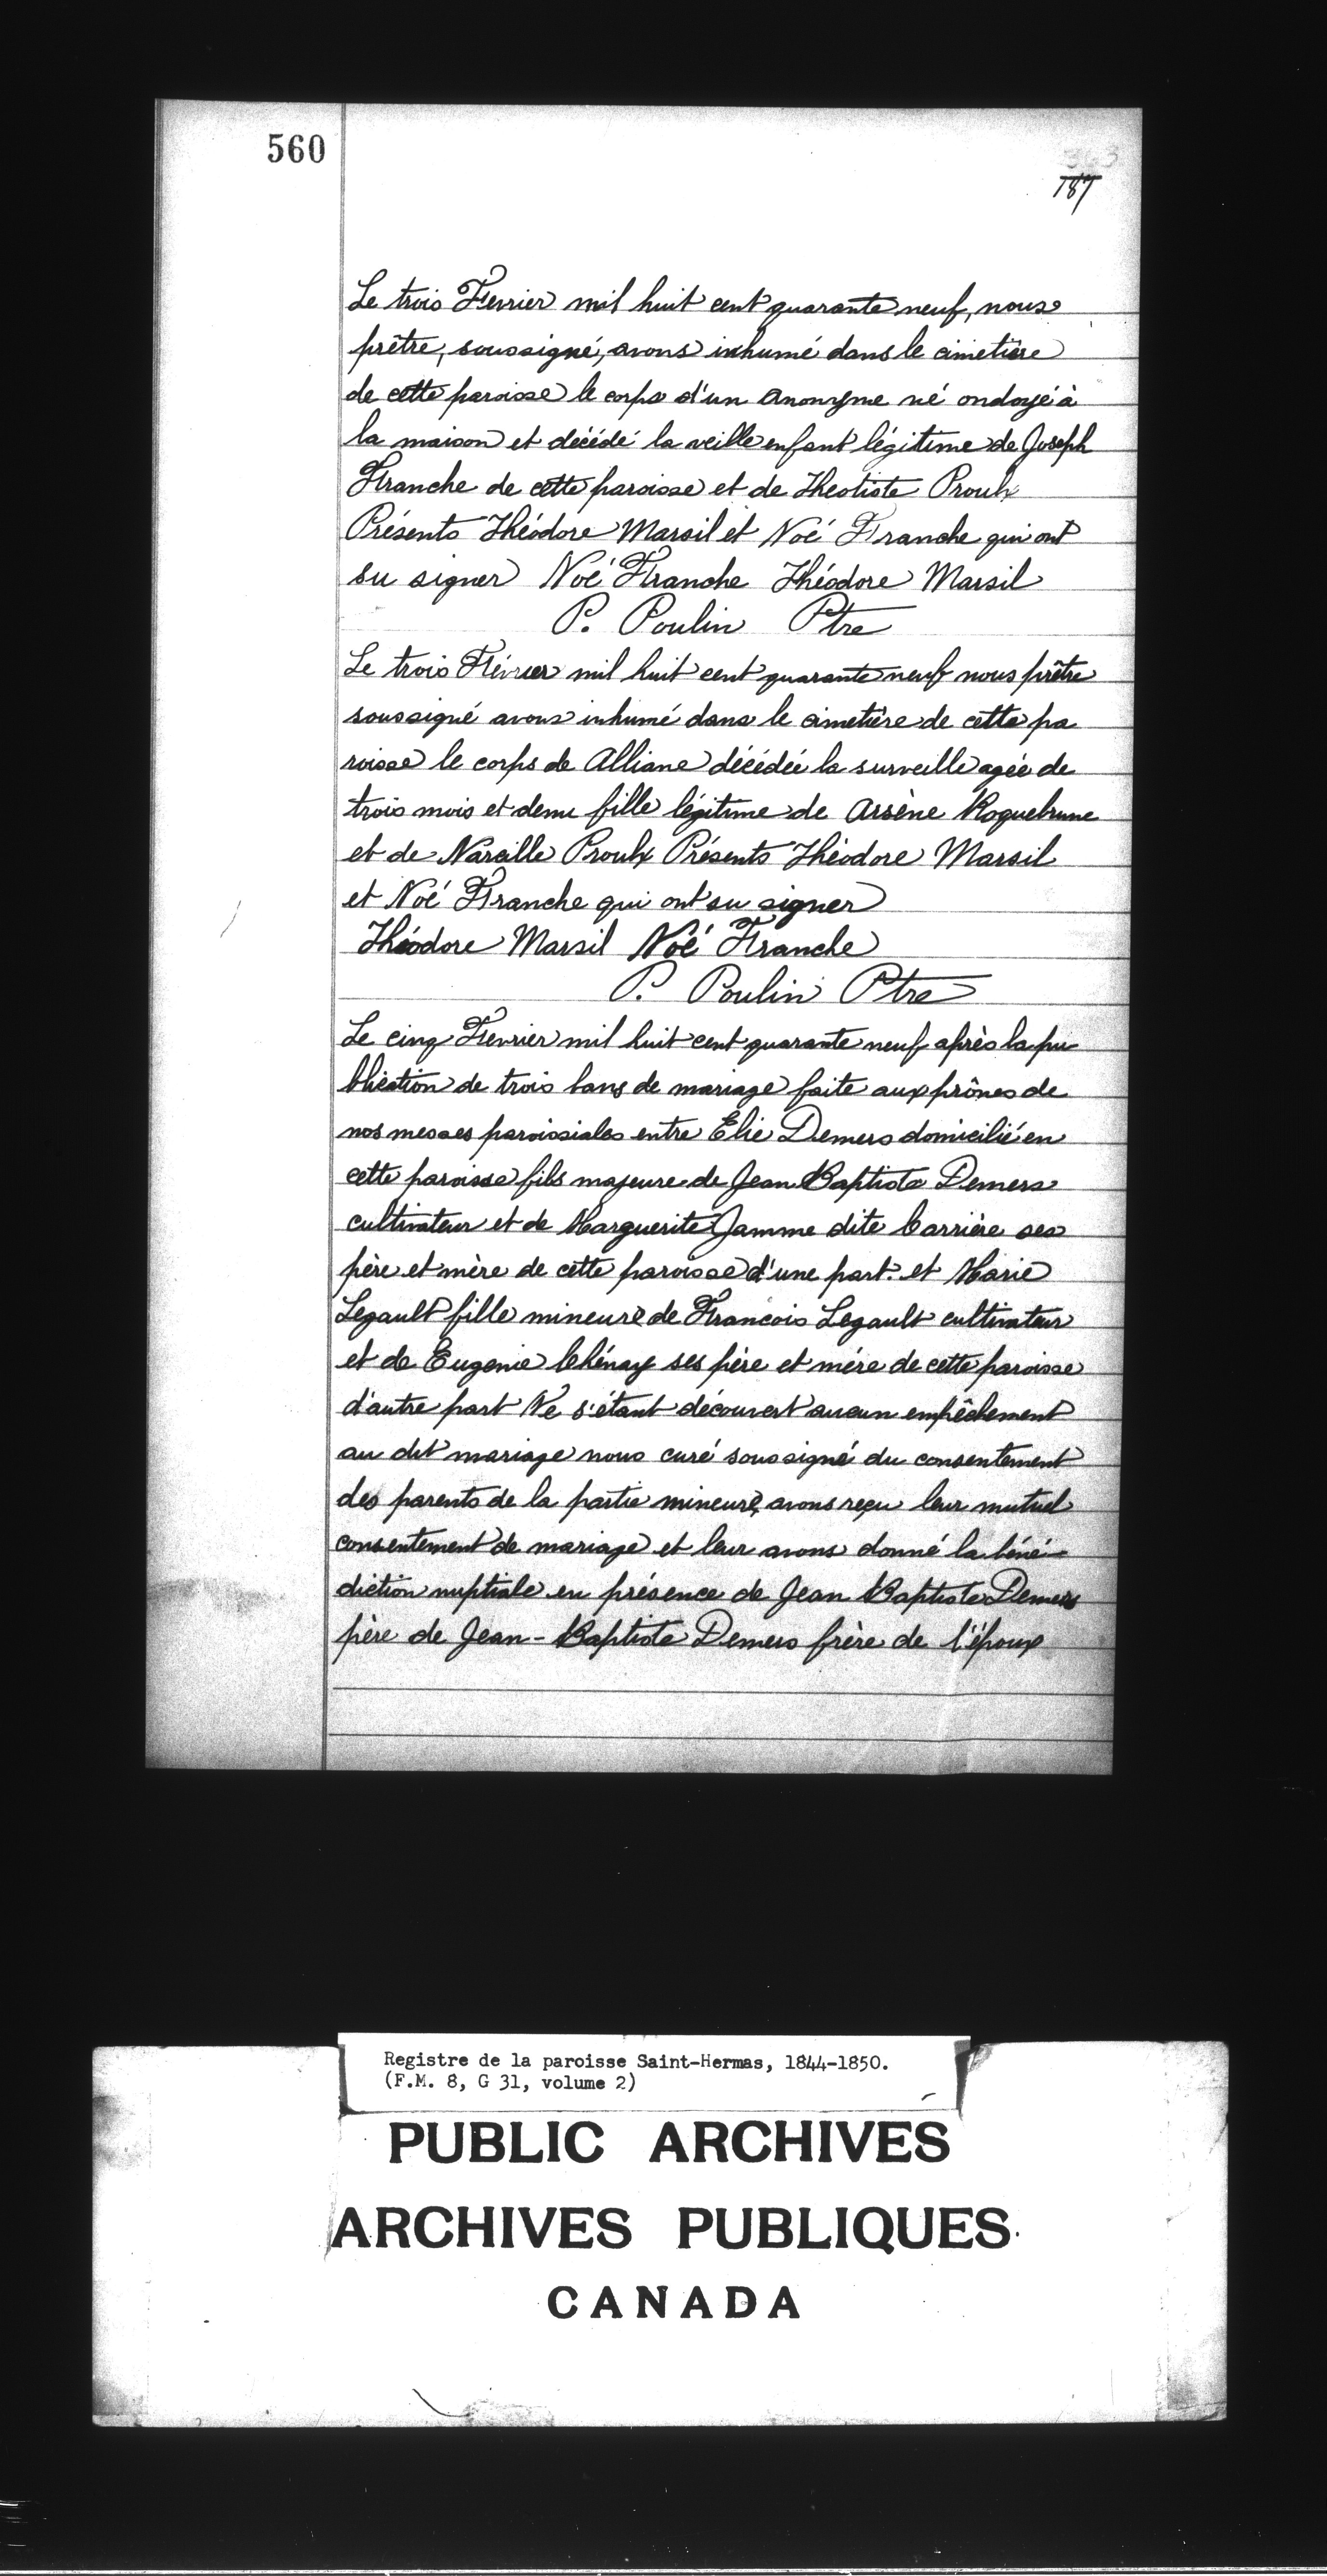 560
363
187
Le trois Fevrier mil huit cent quarante neuf, nous
prêtre, soussigné, avons inhumé dans le cimetière
de cette paroisse le corps d'un anonyme né ondoyé à
la maison et décédé la veille enfant légitime de Joseph
Franche de cette paroisse et de Theotiste Proulx
Présents Théodore Marsil et Noé Franche qui ont
su signer Noé Franche Théodore Marsil
P. Poulin Ptre
Le trois Février mil huit cent quarante neuf nous prêtre
soussigné avons inhumé dans le cimetière de cette pa
roisse le corps de Alliane décédée la surveille agée de
trois mois et demi fille légitime de Arsène Roquebrune
et de Narcille Proulx Présents Théodore Marsil
et Noé Franche qui ont su signer
Théodore Marsil Noé Franche
P. Poulin Ptre
Le cinq Fevrier mil huit cent quarante neuf après la pu
blication de trois bans de mariage faite aux prônes de
nos messes paroissiales entre Elie Demers domicilié en
cette paroisse fils majeure de Jean Baptiste Demers
cultivateur et de Marguerite Jamme dite Carrière ses
père et mère de cette paroisse d'une part. et Marie
Legault fille mineure de Francois Legault cultivateur
et de Eugenie Chénay ses père et mére de cette paroisse
d'autre part Ne s'étant découvert aucun empêchement
au dit mariage nous curé soussigné du consentement
des parents de la partie mineure, avons reçu leur mutuel
consentement de mariage et leur avons donné la béné-
diction nuptiale en présence de Jean Baptiste Demers
père de Jean-Baptiste Demers frère de l'époux
Registre de la paroisse Saint-Hermas, 1844-1850.
(F.M. 8, G 31, volume 2)
PUBLIC ARCHIVES
ARCHIVES PUBLIQUES
CANADA